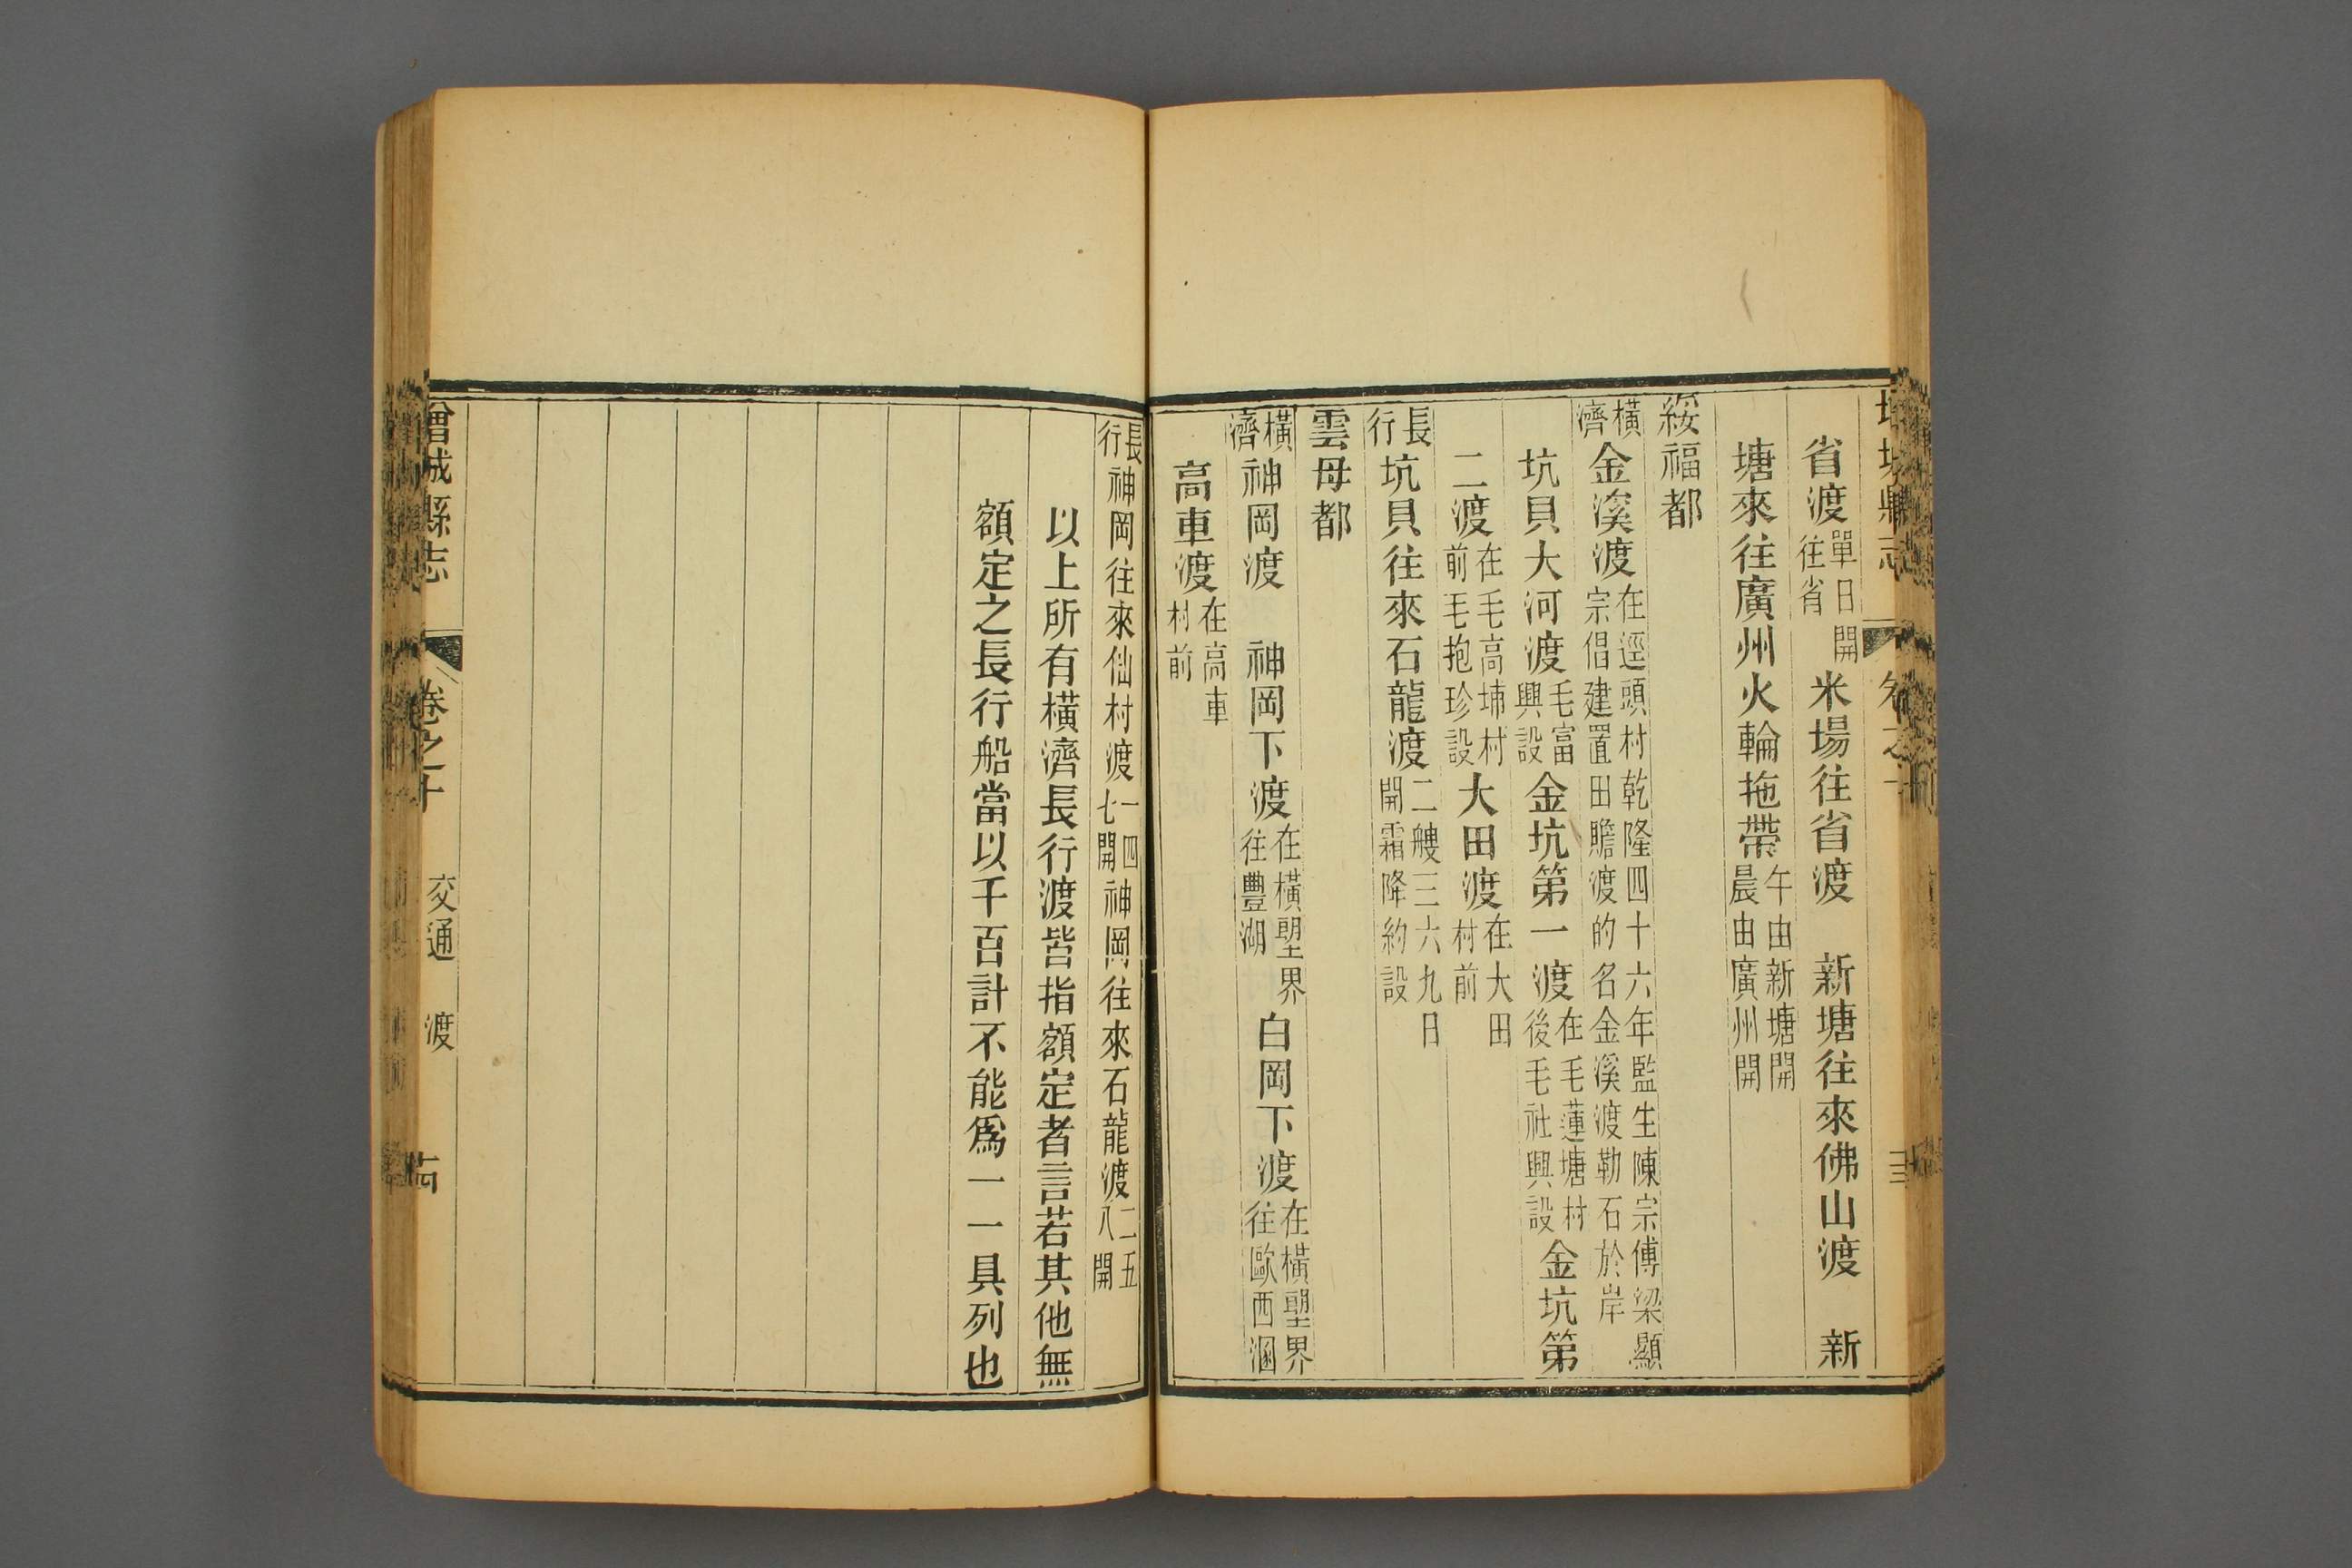 省渡單日開往省 米場往省渡 新塘往來佛山渡 新
塘來往廣州火輪拖帶午由新塘開晨由廣州開
綏福都
橫濟金溪渡在逕頭村乾隆四十六年監生陳宗傅梁顯宗倡建置田贍渡的名金溪渡勒石於岸
坑貝大河渡毛富興設金坑第一渡在毛蓮塘村後毛社興設金坑第
二渡在毛高埔村前毛抱珍設大田渡在大田村前
長行坑貝往來石龍渡二艘三六九日開霜降約設
雲母都
橫濟神岡渡 神岡下渡在橫塱界往豐湖 白岡下渡在橫塱界往歐西涸
高車渡在高車村前
長行神岡往來仙村渡一四七開神岡往來石龍渡二五八開
以上所有橫濟長行渡皆指額定者言若其他無
額定之長行船當以千百計不能爲一一具列也
增城縣志 卷之十 交通 渡